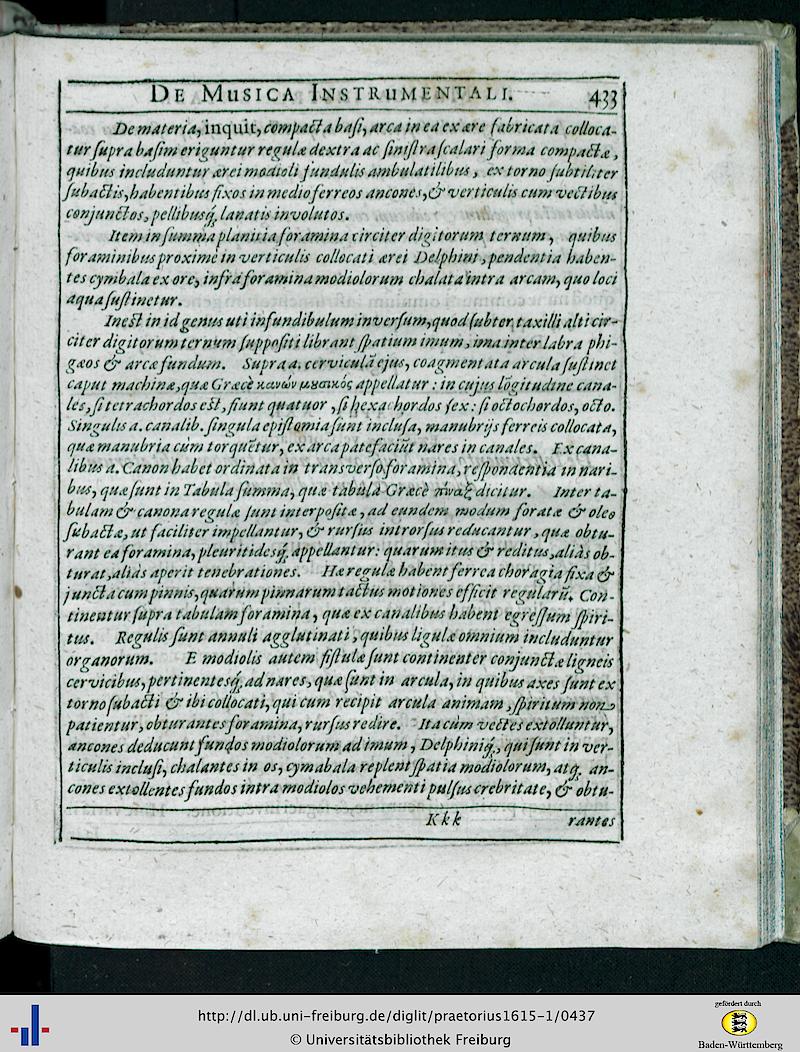 DE MUSICA INSTRUMENTALI. 433
De materia, inquit, compacta basi, arca in ea ex ære fabricata colloca-
tur supra basim eriguntur regulæ dextra ac sinistra scalari forma compactæ,
quibus includuntur ærei modioli fundulis ambulatilibus, ex torno subtiliter
subactis, habentibus fixos in medio ferreos ancones, & verticulis cum vectibus
conjunctos, pellibusq́; lanatis involutos.
Item in summa planitia foramina circiter digitorum ternum, quibus
foraminibus proximè in verticulis collocati ærei Delphini, pendentia haben-
tes cymbala ex ore, infra foramina modiolorum chalata intra arcam, quo loci
aqua sustinetur.
Inest in id genus uti infundibulum inversum, quod subter taxilli alti cir-
citer digitorum ternum suppositi librant spatium imum, ima inter labra phi-
gæos & arcæ fundum. Supra a. cerviculã ejus, coagmentata arcula sustinet
caput machinæ, quæ Græcè κανών μουσικός appellatur: in cujus lõgitudine cana-
les, si tetrachordos est, fiunt quatuor, si hexachordos sex: si octochordos, octo.
Singulis a. canalib. singula epistomia sunt inclusa, manubrijs ferreis collocata,
quæ manubria cùm torquẽtur, ex arca patefaciũt nares in canales. Ex cana-
libus a. Canon habet ordinata in transverso foramina, respondentia in nari-
bus, quæ sunt in Tabula summa, quæ tabula Græcè πίναξ dicitur. Inter ta-
bulam & canona regulæ sunt interpositæ, ad eundem modum foratæ & oleo
subactæ, ut faciliter impellantur, & rursus introrsus reducantur, quæ obtu-
rant ea foramina, pleuritidesq́; appellantur: quarum itus & reditus, aliàs ob-
turat, aliàs aperit tenebrationes. Hæ regulæ habent ferrea choragia fixa &
juncta cum pinnis, quarum pinnarum tactus motiones efficit regularũ. Con-
tinentur supra tabulam foramina, quæ ex canalibus habent egressum spiri-
tus. Regulis sunt annuli agglutinati, quibus ligulæ omnium includuntur
organorum. E modiolis autem fistulæ sunt continenter conjunctæ ligneis
cervicibus, pertinentesq́; ad nares, quæ sunt in arcula, in quibus axes sunt ex
torno subacti & ibi collocati, qui cum recipit arcula animam, spiritum non
patientur, obturantes foramina, rursus redire. Ita cùm vectes extolluntur,
ancones deducunt fundos modiolorum ad imum, Delphiniq́;, qui sunt in ver-
ticulis inclusi, chalantes in os, cymabala replent spatia modiolorum, atq́; an-
cones extollentes fundos intra modiolos vehementi pulsus crebritate, & obtu-
Kkk rantes
http://dl.ub.uni-freiburg.de/diglit/praetorius1615-1/0437
© Universitätsbibliothek Freiburg
gefördert durch
Baden-Württemberg